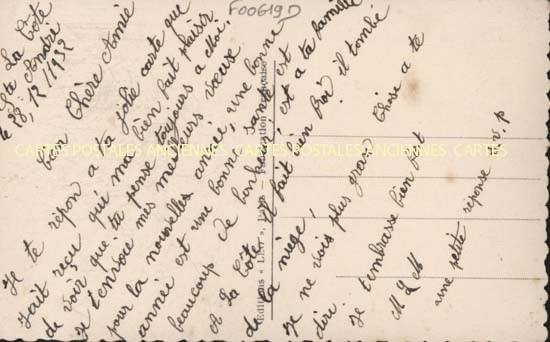 F00619D
La Côte
St André
le 28, 12/1932
Bien Chère Amie
Je te répond a ta jolie carte que
j'ait reçu qui m'a bien fait plaisir
de voir que ta pense toujours a moi.
Je t'envoie mes meilleurs voeux
pour la nouvelle année, une bonne
année et une bonne santé et
beaucoup de bonheur c'est a ta famille
A La Côte il fait bien froi il tombé
de la niège.
Je ne vois plus grand chose a te
dire.
Je t'embrasse bien fort
M L M
une petite réponse s.v.p
Editions « L... », Paris — Fabrication Française
CARTES POSTALES ANCIENNES CARTES POSTALES ANCIENNES CARTES